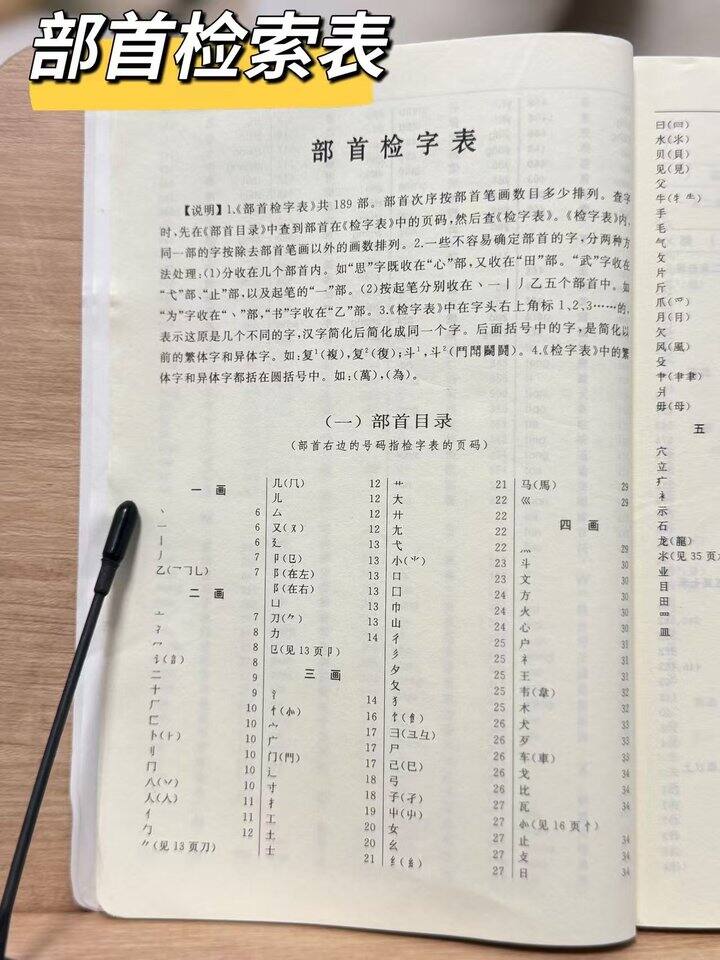 部首检索表
部首检字表
【说明】1.《部首检字表》共 189 部。部首次序按部首笔画数目多少排列。查字
时,先在《部首目录》中查到部首在《检字表》中的页码,然后查《检字表》。《检字表》内,
同一部的字按除去部首笔画以外的画数排列。2.一些不容易确定部首的字,分两种方
法处理:(1)分收在几个部首内。如“思”字既收在“心”部,又收在“田”部。“武”字收在
“弋”部、“止”部,以及起笔的“一”部。(2)按起笔分别收在丶一丨丿乙五个部首中。如
“为”字收在“丶”部,“书”字收在“乙”部。3.《检字表》中在字头右上角标 1、2、3……的,
表示这原是几个不同的字,汉字简化后简化成同一个字。后面括号中的字,是简化以
前的繁体字和异体字。如:复¹(複),复²(復);斗¹,斗²(鬥鬦鬪鬭)。4.《检字表》中的繁
体字和异体字都括在圆括号中。如:(萬),(為)。
(一)部首目录
(部首右边的号码指检字表的页码)
一 画
丶 6
一 6
丨 6
丿 7
乙(乛𠃌乚) 7
二 画
亠 7
冫 8
冖 8
讠(訁) 8
二 9
十 9
厂 10
匚 10
卜(⺊) 10
刂 10
冂 10
八(丷) 11
人(入) 11
亻 11
勹 12
⺈(见 13 页刀)
几(⺇) 12
儿 12
厶 12
又(ヌ) 12
廴 13
卩(㔾) 13
阝(在左) 13
阝(在右) 13
凵 13
刀(⺈) 13
力 14
㔾(见 13 页卩)
三 画
氵 14
忄(⺗) 16
宀 17
广 17
门(門) 18
辶 18
寸 19
扌 19
工 20
土 20
士 21
艹 21
大 22
廾 22
尢 22
弋 22
小(⺌) 23
口 23
囗 24
巾 24
山 24
彳 25
彡 25
夕 25
夂 25
犭 25
饣(飠) 26
彐(彑) 26
尸 26
己(巳) 26
弓 27
子(孑) 27
屮 27
女 27
幺 27
纟(糹) 27
马(馬) 29
巛 29
四 画
灬 29
斗 29
文 30
方 30
火 30
心 30
户 31
礻 31
王 31
韦(韋) 32
木 32
犬 33
歹 33
车(車) 33
戈 34
比 34
瓦 34
⺗(见 16 页忄)
止 34
攴 34
日 34
曰(冃)
水(氺)
贝(貝)
见(見)
父
牛(牜⺧)
手
毛
气
攵
片
斤
爪(爫)
月(⺝)
欠
风(風)
殳
肀(聿⺻)
爿
毋(母)
五
穴
立
疒
衤
示
石
龙(龍)
氺(见 35 页
业
目
田
罒
皿